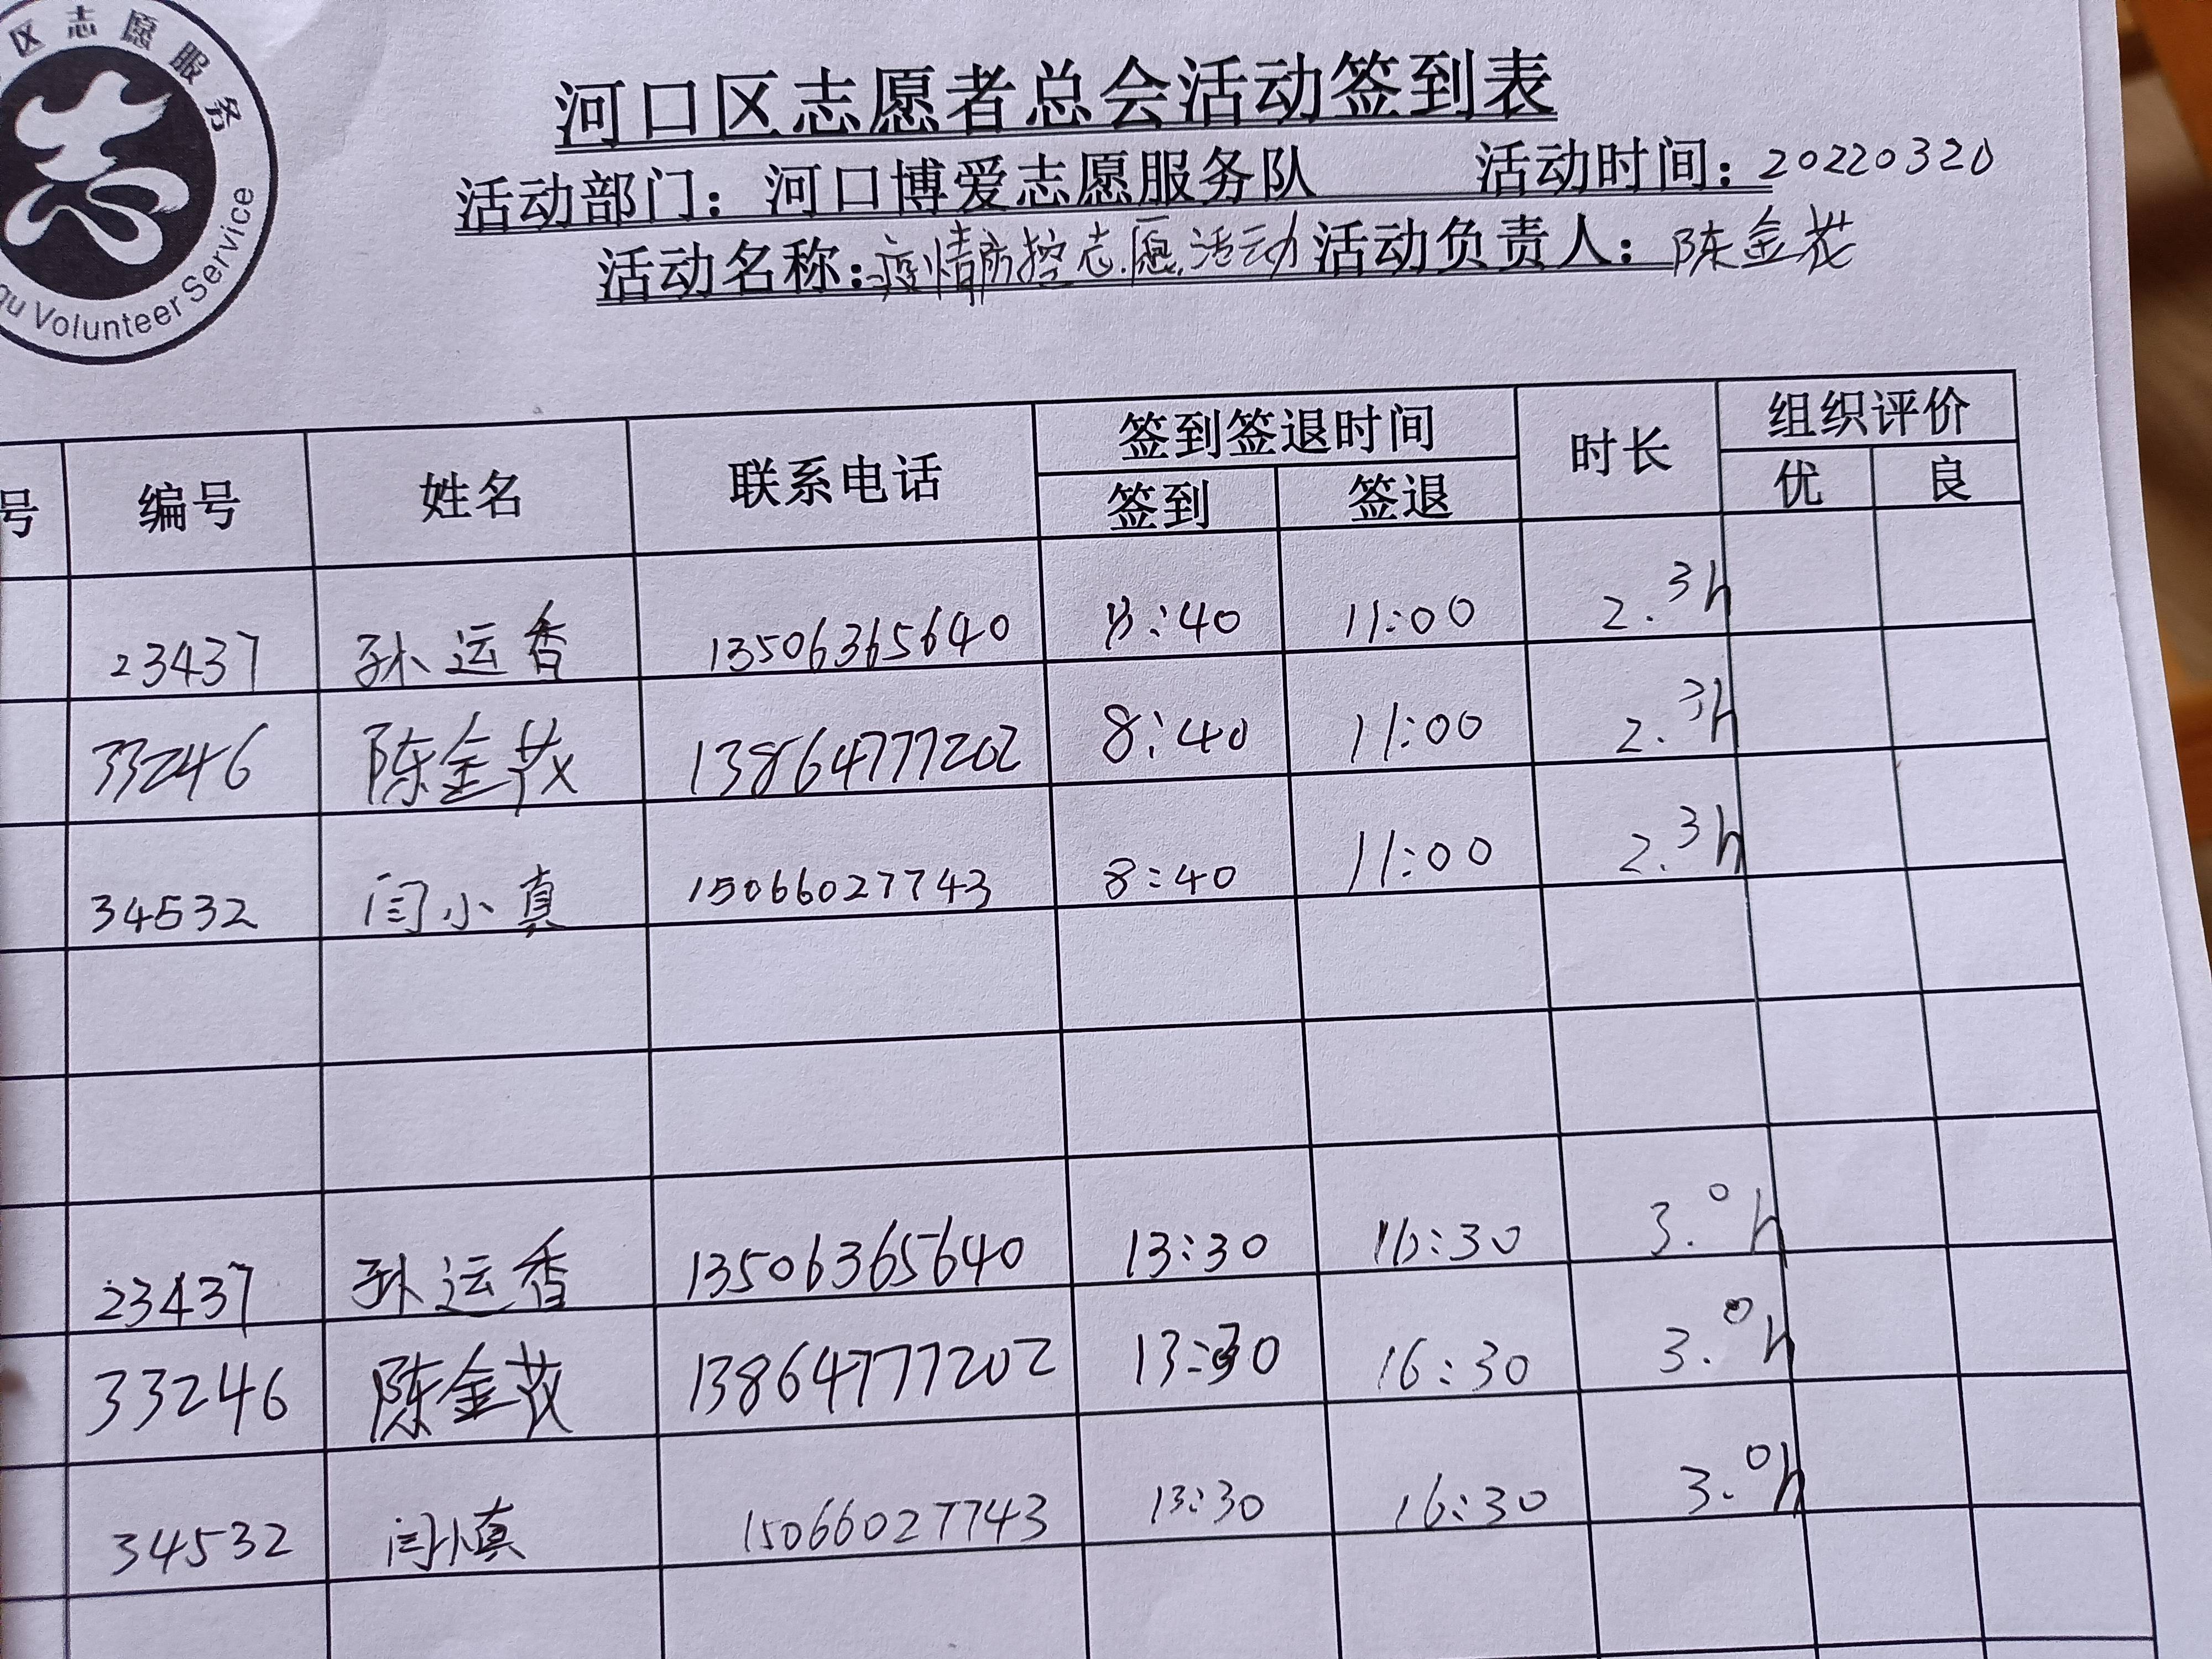 区志愿服务
qu Volunteer Service
河口区志愿者总会活动签到表
活动部门：河口博爱志愿服务队 活动时间：20220320
活动名称：疫情防控志愿活动 活动负责人：陈金花
号 编号 姓名 联系电话 签到签退时间 时长 组织评价
签到 签退 优 良
23437 孙运香 13506365640 8:40 11:00 2.3h
33246 陈金花 13864777202 8:40 11:00 2.3h
34532 闫小真 15066027743 8:40 11:00 2.3h
23437 孙运香 13506365640 13:30 16:30 3.0h
33246 陈金花 13864777202 13:30 16:30 3.0h
34532 闫小真 15066027743 13:30 16:30 3.0h